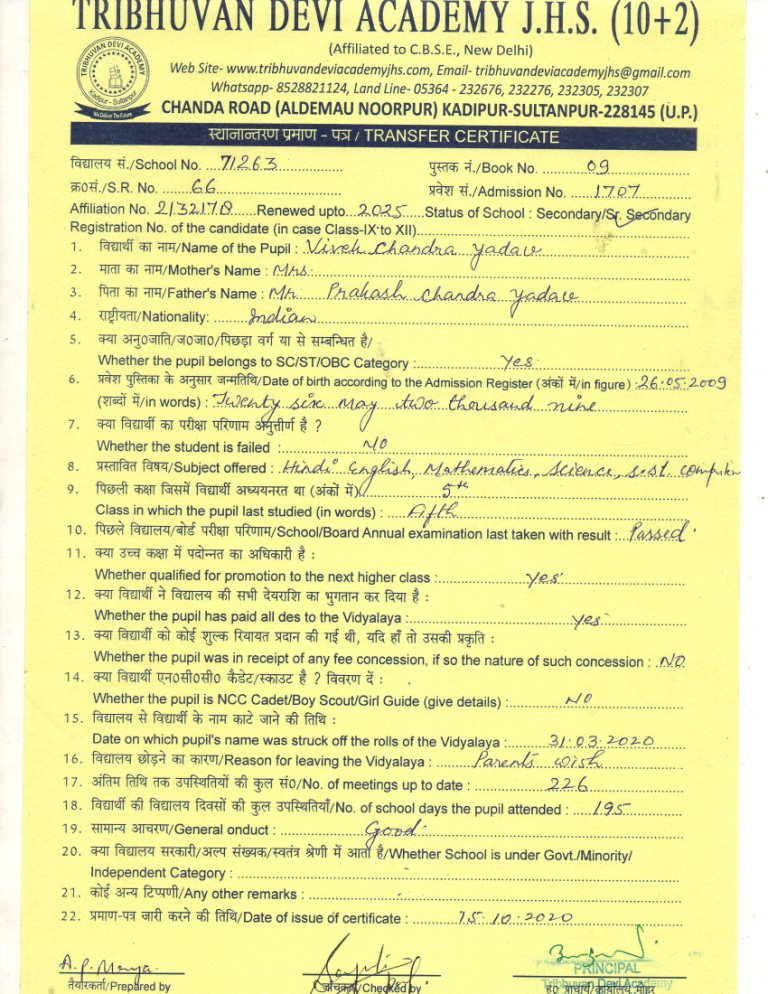 TRIBHUVAN DEVI ACADEMY J.H.S. (10+2)
(Affiliated to C.B.S.E., New Delhi)
TRIBHUVAN DEVI ACADEMY
Kadipur - Sultanpur
We Deliver The Future
Web Site- www.tribhuvandeviacademyjhs.com, Email- tribhuvandeviacademyjhs@gmail.com
Whatsapp- 8528821124, Land Line- 05364 - 232676, 232276, 232305, 232307
CHANDA ROAD (ALDEMAU NOORPUR) KADIPUR-SULTANPUR-228145 (U.P.)
स्थानान्तरण प्रमाण - पत्र / TRANSFER CERTIFICATE
विद्यालय सं./School No. 71263 पुस्तक नं./Book No. 09
क्र०सं./S.R. No. 66 प्रवेश सं./Admission No. 1707
Affiliation No. 2132178 Renewed upto 2025 Status of School : Secondary/Sr. Secondary
Registration No. of the candidate (in case Class-IX to XII)
1. विद्यार्थी का नाम/Name of the Pupil : Vivek Chandra Yadav
2. माता का नाम/Mother's Name : Mrs.
3. पिता का नाम/Father's Name : Mr. Prakash Chandra Yadav
4. राष्ट्रीयता/Nationality: Indian
5. क्या अनु०जाति/ज०जा०/पिछड़ा वर्ग या से सम्बन्धित है/
Whether the pupil belongs to SC/ST/OBC Category : Yes
6. प्रवेश पुस्तिका के अनुसार जन्मतिथि/Date of birth according to the Admission Register (अंकों में/in figure) : 26.05.2009
(शब्दों में/in words) : Twenty six may two thousand nine
7. क्या विद्यार्थी का परीक्षा परिणाम अनुत्तीर्ण है ?
Whether the student is failed : NO
8. प्रस्तावित विषय/Subject offered : Hindi English, Mathematics, Science, s.st. computer
9. पिछली कक्षा जिसमें विद्यार्थी अध्ययनरत था (अंकों में) 5th
Class in which the pupil last studied (in words) : Fifth
10. पिछले विद्यालय/बोर्ड परीक्षा परिणाम/School/Board Annual examination last taken with result : Passed
11. क्या उच्च कक्षा में पदोन्नत का अधिकारी है :
Whether qualified for promotion to the next higher class : yes
12. क्या विद्यार्थी ने विद्यालय की सभी देयराशि का भुगतान कर दिया है :
Whether the pupil has paid all des to the Vidyalaya : yes
13. क्या विद्यार्थी को कोई शुल्क रियायत प्रदान की गई थी, यदि हाँ तो उसकी प्रकृति :
Whether the pupil was in receipt of any fee concession, if so the nature of such concession : NO
14. क्या विद्यार्थी एन०सी०सी० कैडेट/स्काउट है ? विवरण दें :
Whether the pupil is NCC Cadet/Boy Scout/Girl Guide (give details) : NO
15. विद्यालय से विद्यार्थी के नाम काटे जाने की तिथि :
Date on which pupil's name was struck off the rolls of the Vidyalaya : 31.03.2020
16. विद्यालय छोड़ने का कारण/Reason for leaving the Vidyalaya : Parents wish
17. अंतिम तिथि तक उपस्थितियों की कुल सं०/No. of meetings up to date : 226
18. विद्यार्थी की विद्यालय दिवसों की कुल उपस्थितियाँ/No. of school days the pupil attended : 195
19. सामान्य आचरण/General onduct : Good
20. क्या विद्यालय सरकारी/अल्प संख्यक/स्वतंत्र श्रेणी में आता है/Whether School is under Govt./Minority/
Independent Category :
21. कोई अन्य टिप्पणी/Any other remarks :
22. प्रमाण-पत्र जारी करने की तिथि/Date of issue of certificate : 15.10.2020
PRINCIPAL
Tribhuvan Devi Academy
तैयारकर्ता/Prepared by जाँचकर्ता/Checked by ह० प्राचार्य/कार्यालय मोहर